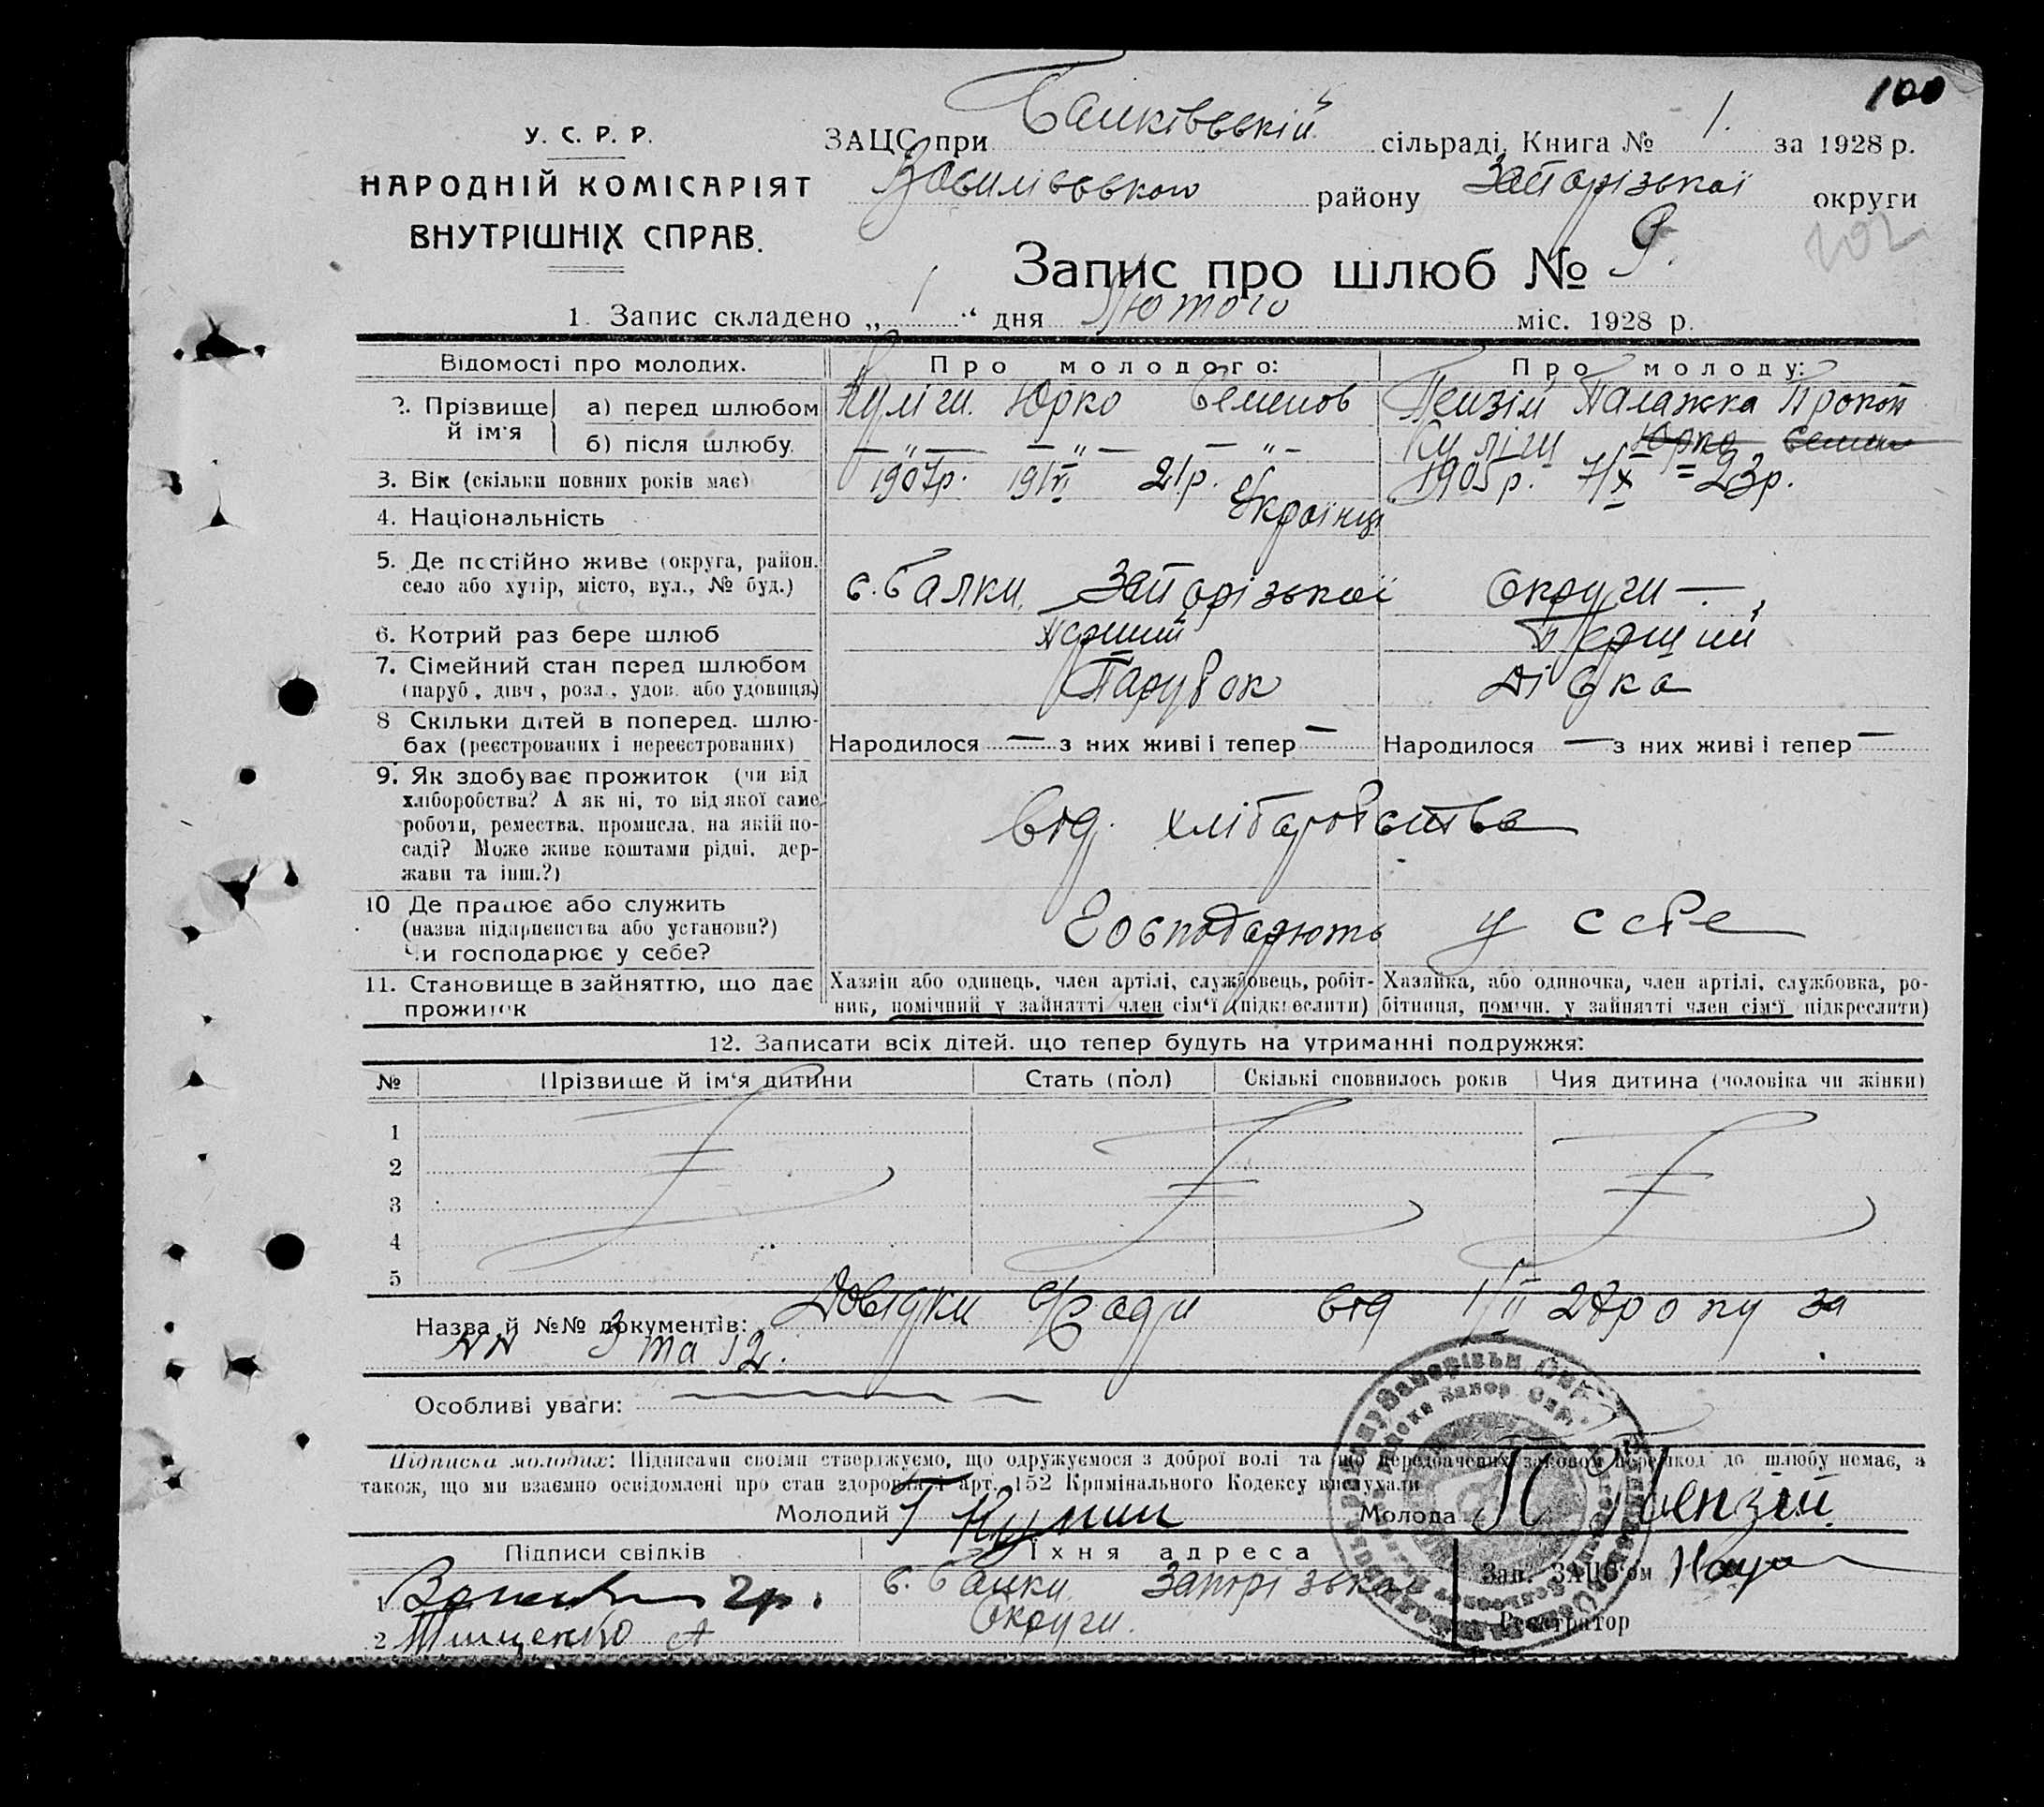 100
У. С. Р. Р.
НАРОДНІЙ КОМІСАРІЯТ
ВНУТРІШНІХ СПРАВ.
ЗАЦС при Балківській сільраді, Книга № 1. за 1928 р.
Василівського району Запорізької округи
202
Запис про шлюб № 9.
1. Запис складено „ 1 “ дня Лютого міс. 1928 р.
Відомості про молодих. Про молодого: Про молоду:
2. Прізвище й ім'я а) перед шлюбом Куліш Юрко Семенов Пензій Палажка Прокоп
б) після шлюбу. — „ — — „ — — „ — Куліш Юрко Семен
3. Вік (скільки повних років має) 1907р. 19/VI 21р. 1905 р. 7/X = 23р.
4. Національність Українці
5. Де постійно живе (округа, район, село або хутір, місто, вул., № буд.) с. Балки, Запорізької Округи —
6. Котрий раз бере шлюб Перший Перший
7. Сімейний стан перед шлюбом (паруб., дівч., розл., удов. або удовиця) Парубок Дівка
8 Скільки дітей в поперед. шлюбах (реєстрованих і нереєстрованих) Народилося — з них живі і тепер — Народилося — з них живі і тепер —
9. Як здобуває прожиток (чи від хліборобства? А як ні, то від якої саме роботи, ремества, промисла, на якій посаді? Може живе коштами рідні, держави та інш.?) Від хліборобства
10 Де працює або служить (назва підприємства або установи?) Чи господарює у себе? Господарюють у себе
11. Становище в зайняттю, що дає прожиток
Хазяїн або одинець, член артілі, службовець, робітник, помічний у зайнятті член сім'ї (підкреслити)
Хазяйка, або одиночка, член артілі, службовка, робітниця, помічн. у зайнятті член сім'ї підкреслити)
12. Записати всіх дітей, що тепер будуть на утриманні подружжя:
№ Прізвище й ім'я дитини Стать (пол) Скількі сповнилось років Чия дитина (чоловіка чи жінки)
1
2
3
4
5
Назва й №№ документів: Довідки с/ради від 1/II 28 року за
NN 3 та 12.
Особливі уваги:
Підписка молодих: Підписами своїми стверджуємо, що одружуємося з доброї волі та що передбачених законом перешкод до шлюбу немає, а
також, що ми взаємно освідомлені про стан здоровля і арт. 152 Кримінального Кодексу вислухали
Молодий Куліш Молода П Пензій
Підписи свідків Їхня адреса Зав. ЗАЦС'ом
1 Гр. с. Балки Запорізької
2 Тищенко А Округи. Реєстратор